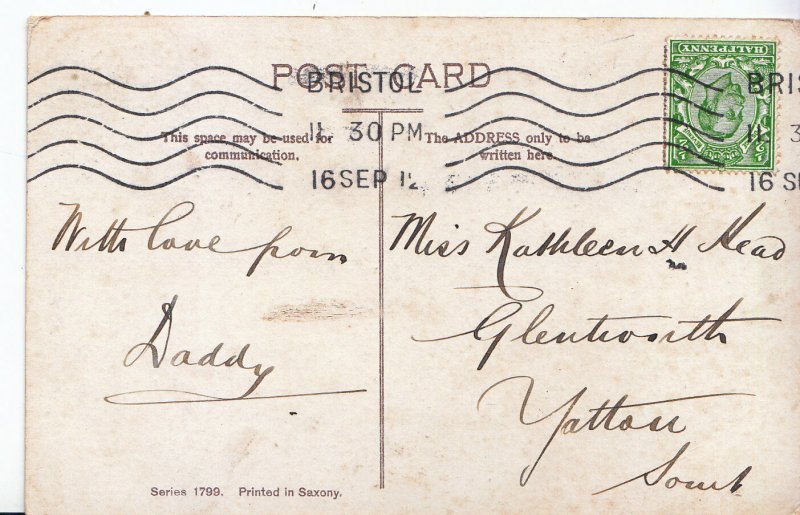 POST CARD
BRISTOL
11 30 PM
16 SEP 12
BRIS
11 3
16 SE
HALFPENNY
This space may be used for
communication.
The ADDRESS only to be
written here.
With love from
Daddy
Miss Kathleen H Head
Glentworth
Yatton
Somt
Series 1799. Printed in Saxony.